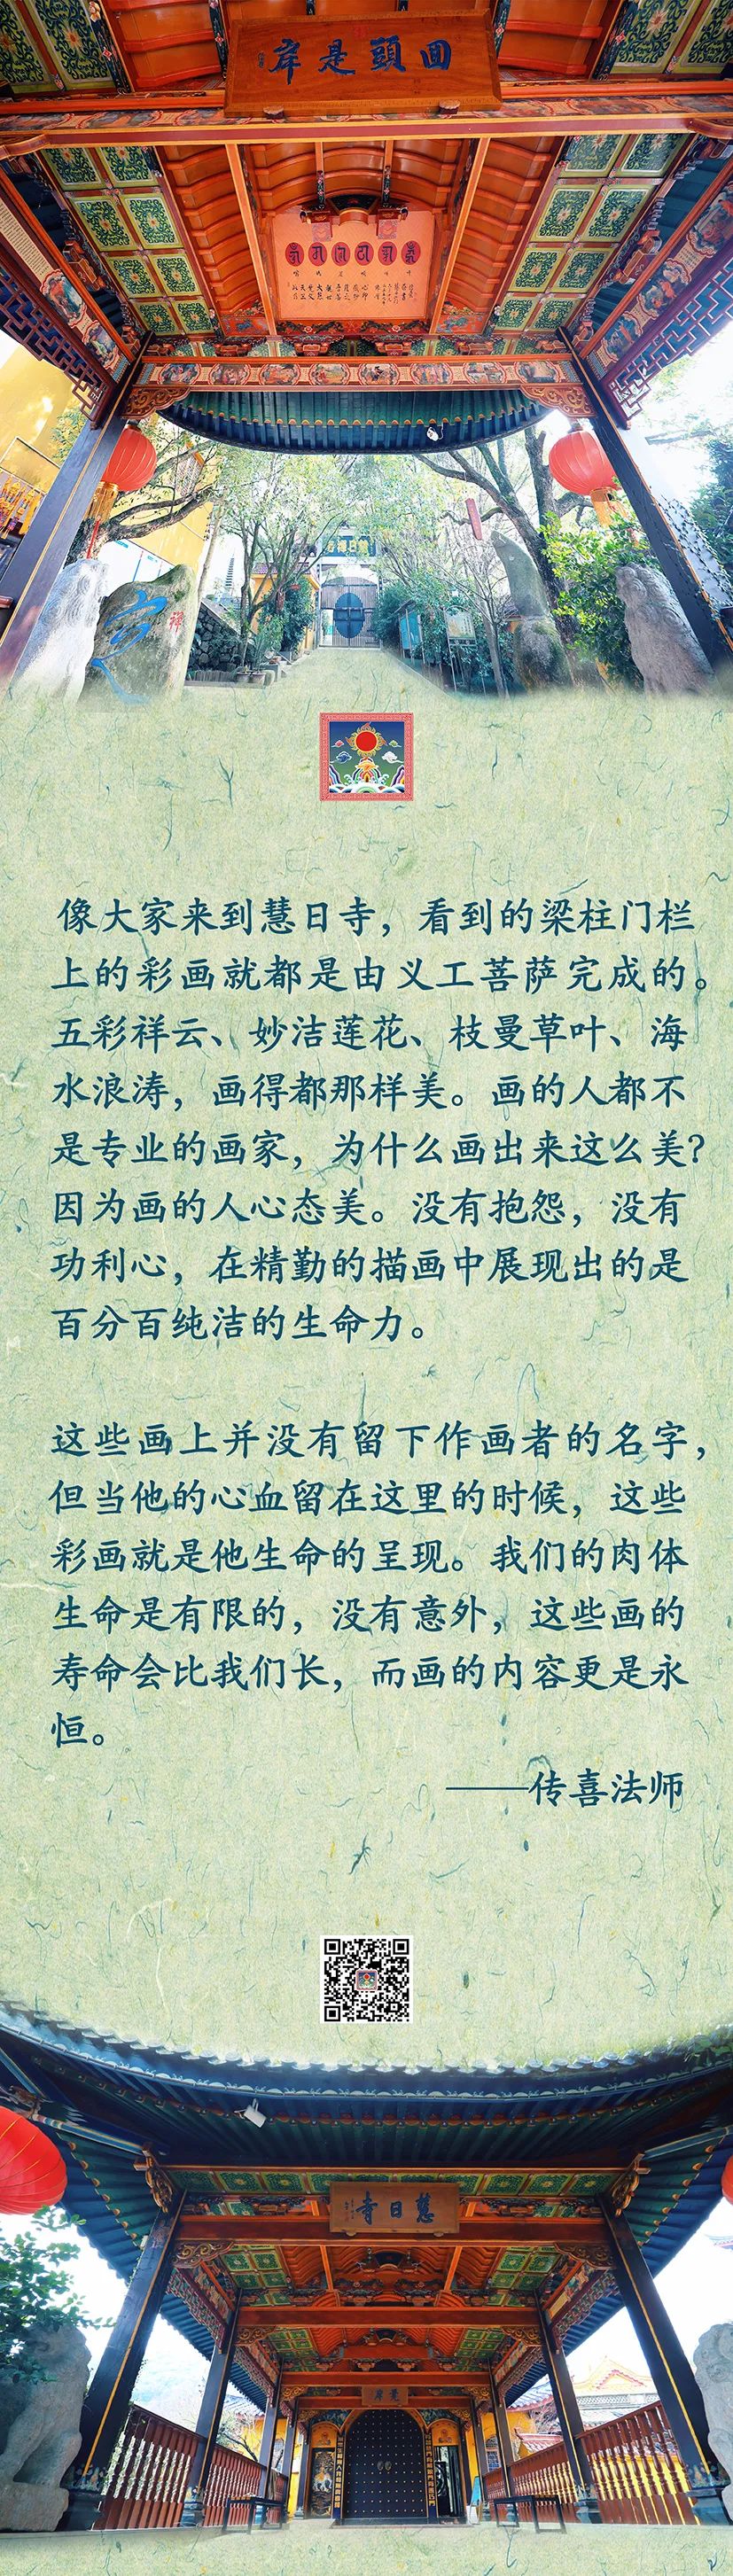 回頭是岸
定
禪
像大家来到慧日寺，看到的梁柱门栏
上的彩画就都是由义工菩萨完成的。
五彩祥云、妙洁莲花、枝曼草叶、海
水浪涛，画得都那样美。画的人都不
是专业的画家，为什么画出来这么美？
因为画的人心态美。没有抱怨，没有
功利心，在精勤的描画中展现出的是
百分百纯洁的生命力。
这些画上并没有留下作画者的名字，
但当他的心血留在这里的时候，这些
彩画就是他生命的呈现。我们的肉体
生命是有限的，没有意外，这些画的
寿命会比我们长，而画的内容更是永
恒。
——传喜法师
慧日寺